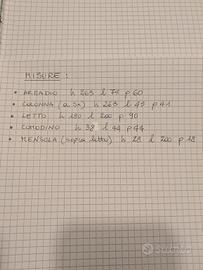 MISURE :
• ARMADIO h 263 l 75 p 60
• COLONNA (a sx) h 263 l 45 p 41
• LETTO h 180 l 200 p 90
• COMODINO h 38 l 44 p 44
• MENSOLA (sopra letto) h 28 l 200 p 18
subito